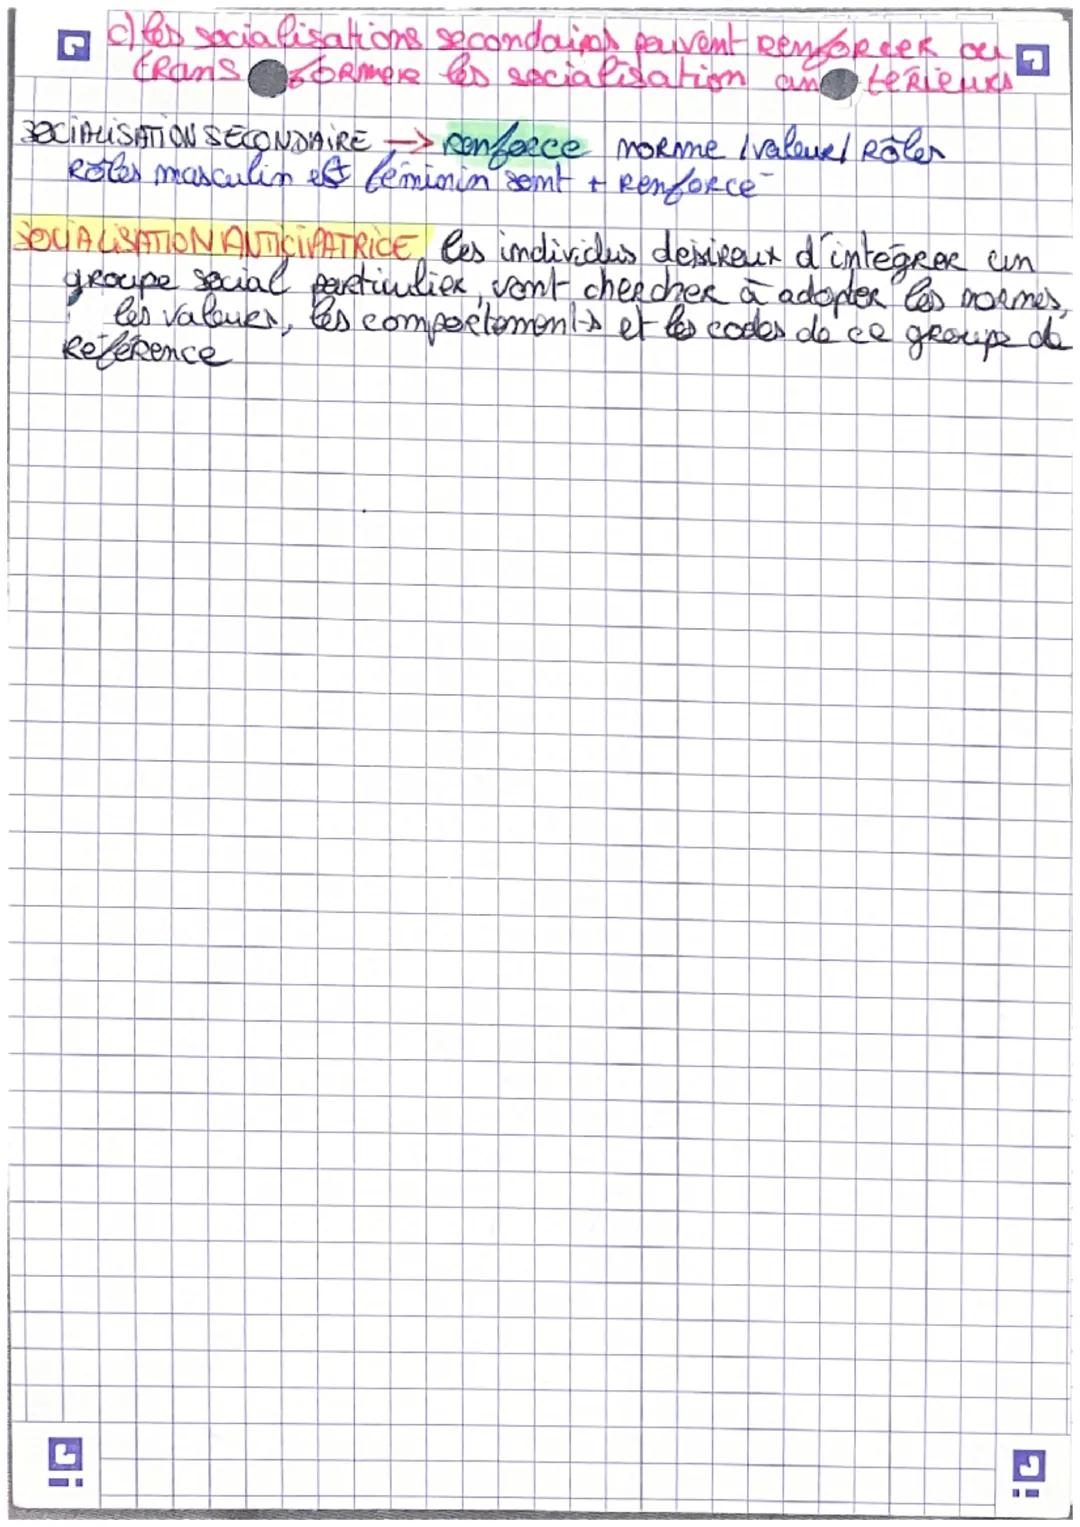 c) les socialisations secondaires peuvent Renforcer ou
trans formere les socialisation an térieurs
SOCIALISATION SECONDAIRE → Renforce norme / valeur / Rôles
Rôles masculin et féminin sont + Renforcé
SOCIALISATION ANTICIPATRICE, les individus desireux d'intégrer un
groupe social particulier, vont chercher à adopter les normes,
les valeurs, les comportements et les codes de ce groupe de
Référence